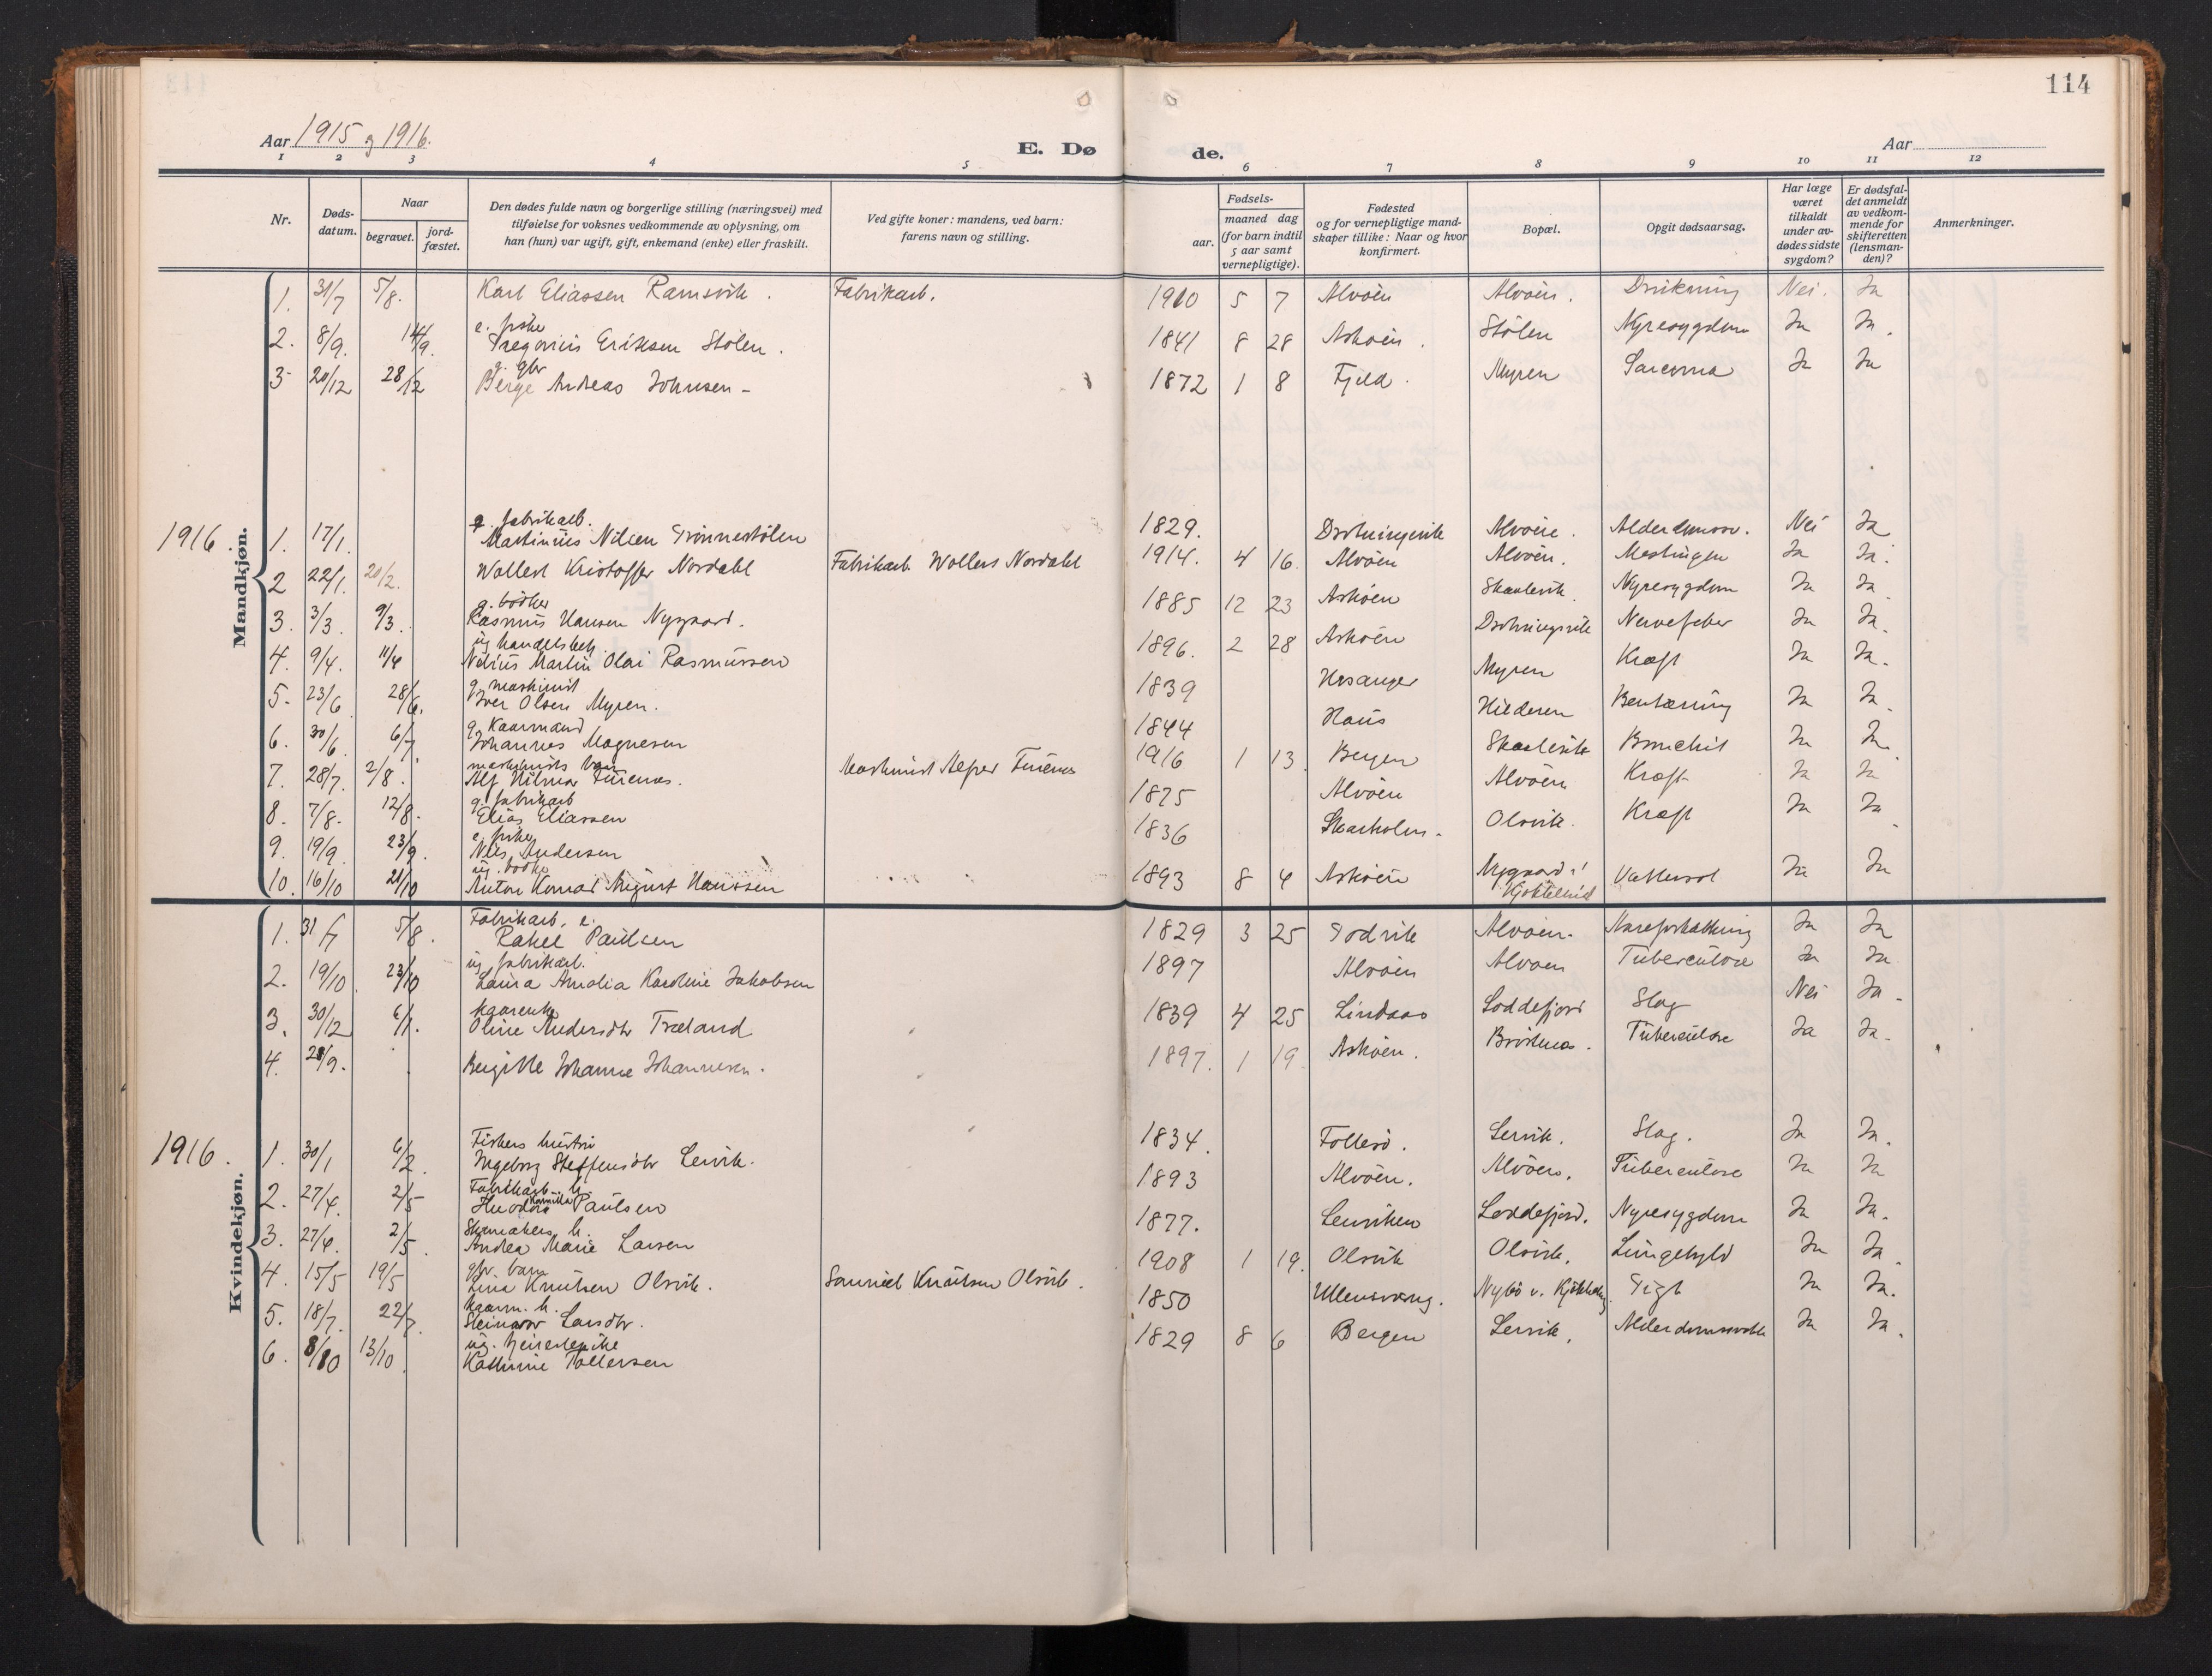 114
Aar 1915 og 1916.
E. Dø de.
Aar
1 2 3 4 5 6 7 8 9 10 11 12
Nr.
Døds-datum.
Naar
begravet.
jord-fæstet.
Den dødes fulde navn og borgerlige stilling (næringsvei) med
tilføielse for voksnes vedkommende av oplysning, om
han (hun) var ugift, gift, enkemand (enke) eller fraskilt.
Ved gifte koner: mandens, ved barn:
farens navn og stilling.
Fødsels-
aar.
maaned dag
(for barn indtil
5 aar samt
vernepligtige).
Fødested
og for vernepligtige mand-
skaper tillike: Naar og hvor
konfirmert.
Bopæl.
Opgit dødsaarsag.
Har læge
været
tilkaldt
under av-
dødes sidste
sygdom?
Er dødsfal-
det anmeldt
av vedkom-
mende for
skifteretten
(lensman-
den)?
Anmerkninger.
Mandkjøn.
1. 31/7 5/8. Karl Eliassen Ramsvik. Fabrikarb. 1910 5 7 Alvøen Alvøen. Drukning Nei. Ja
e. fisker
2. 8/9. 14/9. Gregorius Eriksen Stølen. 1841 8 28 Askøen. Stølen Nyresygdom Ja Ja.
g. gbr
3 20/12 28/12 Berge Andreas Johnsen - 1872 1 8 Fjeld. Myren Sarcoma Ja Ja
1916.
g. fabrikarb.
1. 17/1. Martinius Nilsen 1829. Alvøen. Nei Ja
2 22/1. 20/2. Wollert Kristoffer Nordahl Fabrikarb. Wollert Nordahl 1914. 4 16. Alvøen Alvøen. Meslinger Ja Ja.
g. bødker
3. 3/3. 9/3. Rasmus Hansen Nygaard. 1885 12 23 Askøen Skaalevik. Nyresygdom Ja Ja.
ug handelsbetj.
4. 9/4. 11/4 Nilius Martin Olai Rasmussen 1896. 2 28 Askøen Drotningsvik Nervefeber Ja Ja.
g. maskinist
5. 23/6 28/6. Iver Olsen Myren. 1839 Hosanger Myren Kræft Ja Ja.
g. Kaarmand
6. 30/6. 6/7 Johannes Magnesen 1844 Haus Hilderen Bentæring Ja Ja.
maskinists barn
7. 28/7. 2/8. Alf Hilmar Maskinist 1916 1 13. Bergen Skaalevik Bronchit Ja Ja.
g. fabrikarb
8. 7/8. 12/8. Elias Eliassen 1875 Alvøen Alvøen Kræft Ja Ja
e. fisker
9. 19/9. 23/9. Nils Andersen 1836 Skarholm. Olsvik. Kræft Ja Ja.
ug. bødker
10. 16/10 21/10 Anton Konrad August Hanssen 1893 8 4 Askøen Nygaard i Vattersot Ja Ja
Kvindekjøn.
Fabrikarb. e.
1. 31/7 5/8. Rakel Paulsen 1829 3 25 Godvik Alvøen. Ja Ja
ug fabrikarb.
2. 19/10. 23/10 Laura Amalia Karoline Jakobsen 1897 Alvøen Alvøen Tuberculose Ja Ja
kaarenke
3. 30/12 6/1. Oline Andersdtr Træland 1839 4 25 Lindaas Loddefjord Slag Nei Ja.
4. 28/9. Birgitte Johanne Johannesen. 1897. 1 19. Askøen. Tuberculose Ja Ja.
1916.
Fiskers hustru
1. 30/1 6/2. Ingeborg Steffensdtr Lervik. 1834. Follesø. Lervik. Slag. Ja Ja.
Fabrikarb. h.
2. 27/4. 2/5 Theodora Kamilla Paulsen 1893 Alvøen. Alvøen. Tuberculose Ja Ja
Skomakers h.
3. 27/4. 2/5. Andrea Marie Larsen 1877. Loddefjord. Nyresygdom Ja Ja.
gbr. barn
4. 15/5 19/5 Lina Knutsen Olsvik. Samuel Knutsen Olsvik. 1908 1 19. Olsvik Olsvik. Ja Ja.
kaarm. h.
5. 18/7. 22/7. Steinvor Larsdtr. 1850 Ullensvang. Gigt Ja Ja.
ug.
6. 8/10 13/10. Kathrine Tollersen 1829 8 6 Bergen Lervik. Ja Ja.